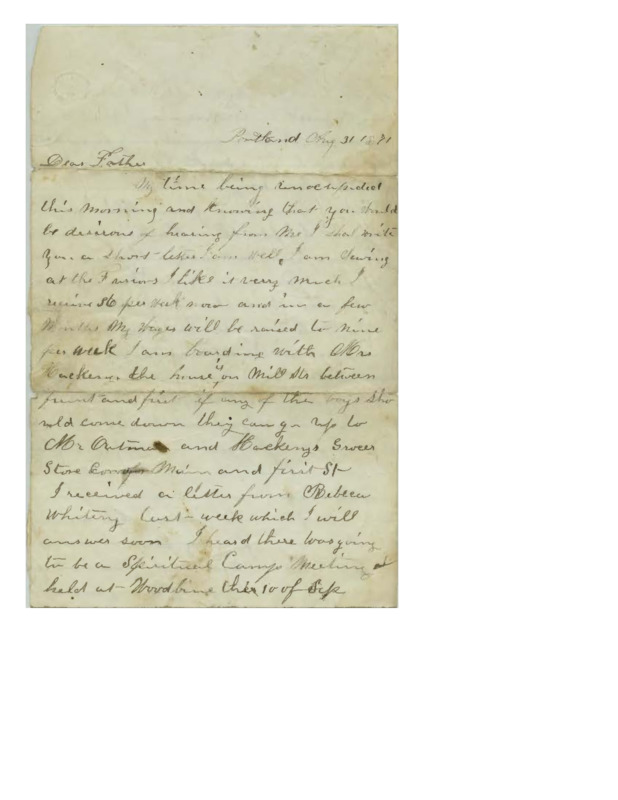 Portland Aug 31 1871
Dear Father
My time being unoccupided
this morning and knowing that you should
be desirous of hearing from me I shal write
you a short letter I am well, I am
at the I like it verry much I
receive $6 per week now and in a few
Months My Wages will be raised to nine
per week I am boarding with Mrs
the house is on Mill Str between
and first if any of the boys sho
uld come down they can go up to
Mr and Hackenys Grocer
Store Main and first St
I received a letter from Rebeca
Whiteny last week which I will
answer soon I heard there was going
to be a Spiritual Camp Meeting
held at Woodbine the 10 of Sep